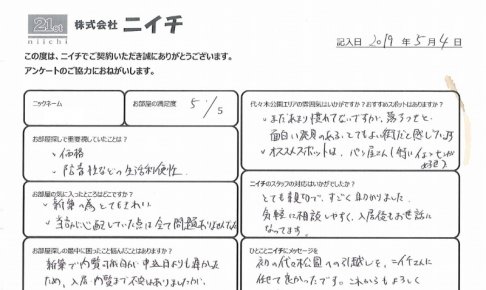 21st
niichi
株式会社 ニイチ
記入日 2019 年 5 月 4 日
この度は、ニイチでご契約いただき誠にありがとうございます。
アンケートのご協力におねがいします。
ニックネーム
お部屋の満足度 5 / 5
お部屋探しで重要視していたことは？
・価格
・防音性などの生活利便性
お部屋の気に入ったところはどこですか？
・新築の為とてもきれい
・当初心配していた点は全て問題ありませんでした
お部屋探しの最中に困ったこと悩んだことはありますか？
新築で内覧可能日が申込日よりも遅かった
ため、入居 内覧まで不安はありましたが、
代々木公園エリアの雰囲気はいかがですか？おすすめスポットはありますか？
・まだあまり慣れてないですが、落ちつきと
面白い発見のある、とてもよい街だと感じています
・オススメスポットは、パン屋さん
ニイチのスタッフの対応はいかがでしたか？
とても親切で、すごく助かりました。
気軽に相談しやすく、入居後もお世話に
なってます。
ひとことニイチにメッセージを
初の代々木公園への引越しを、ニイチさんに
任せて良かったです。これからもよろしく